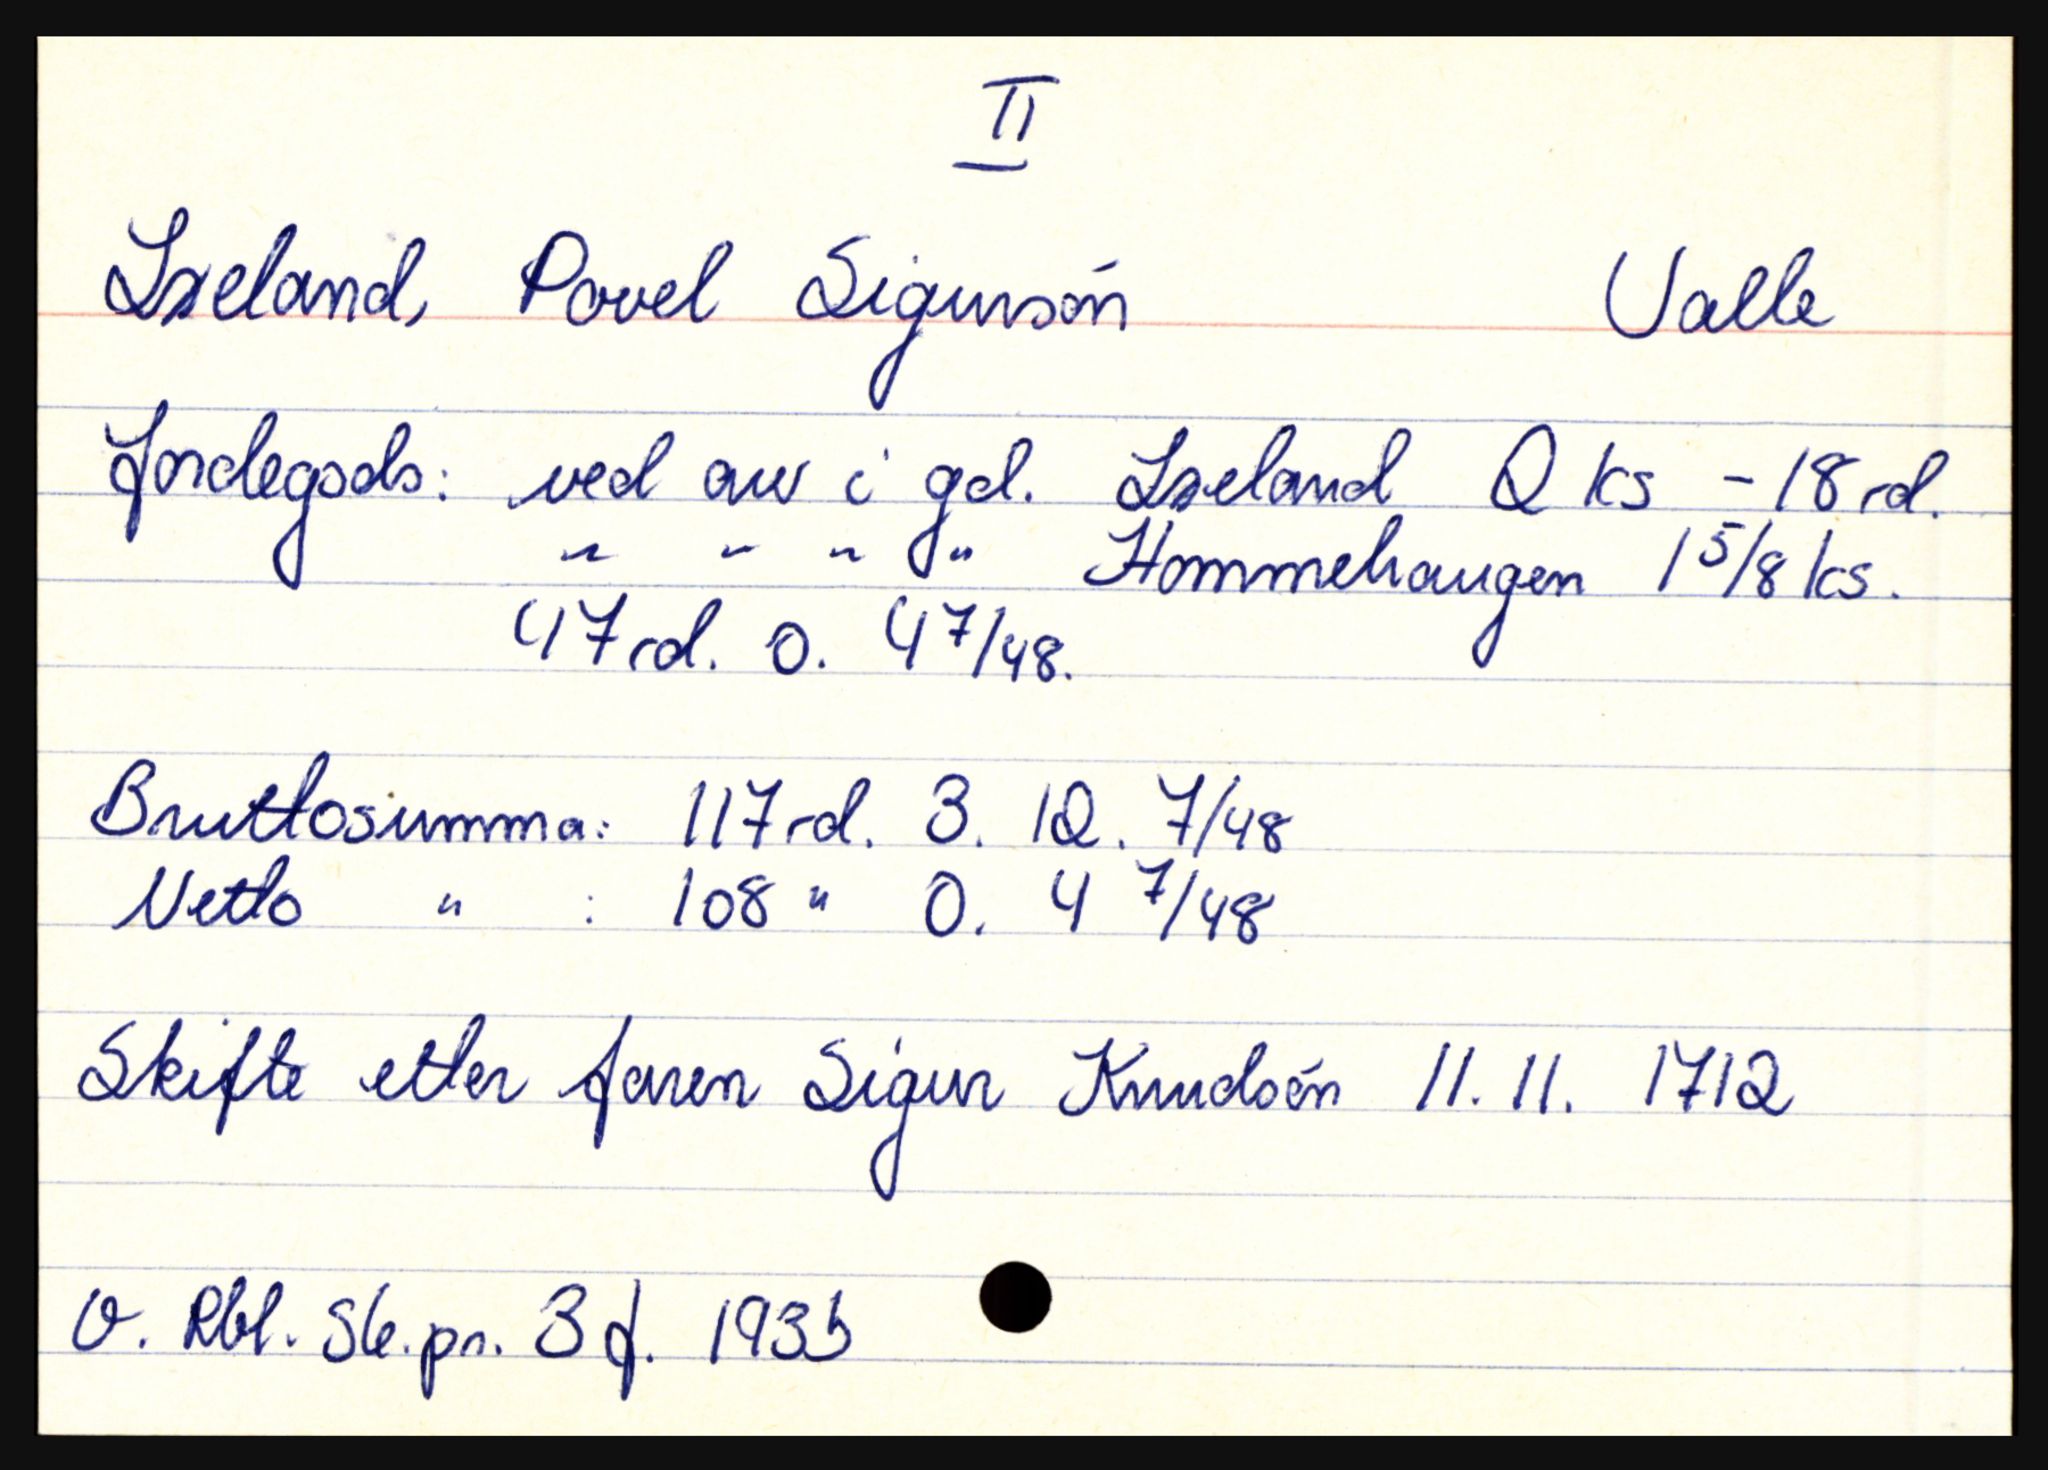 II
Lxeland, Povel Sigursón Valle
Jordegods: ved arv i gd. Lxeland 2 ks - 18 rd.
" " " " Hommehaugen 1 5/8 ks.
47 rd. 0. 4 7/48.
Bruttosumma: 117 rd. 3. 12. 7/48
Netto " : 108 " 0. 4 7/48
Skifte etter faren Sigur Knudsón 11. 11. 1712
O. Rbl. Sk.pr. 3 f. 193b